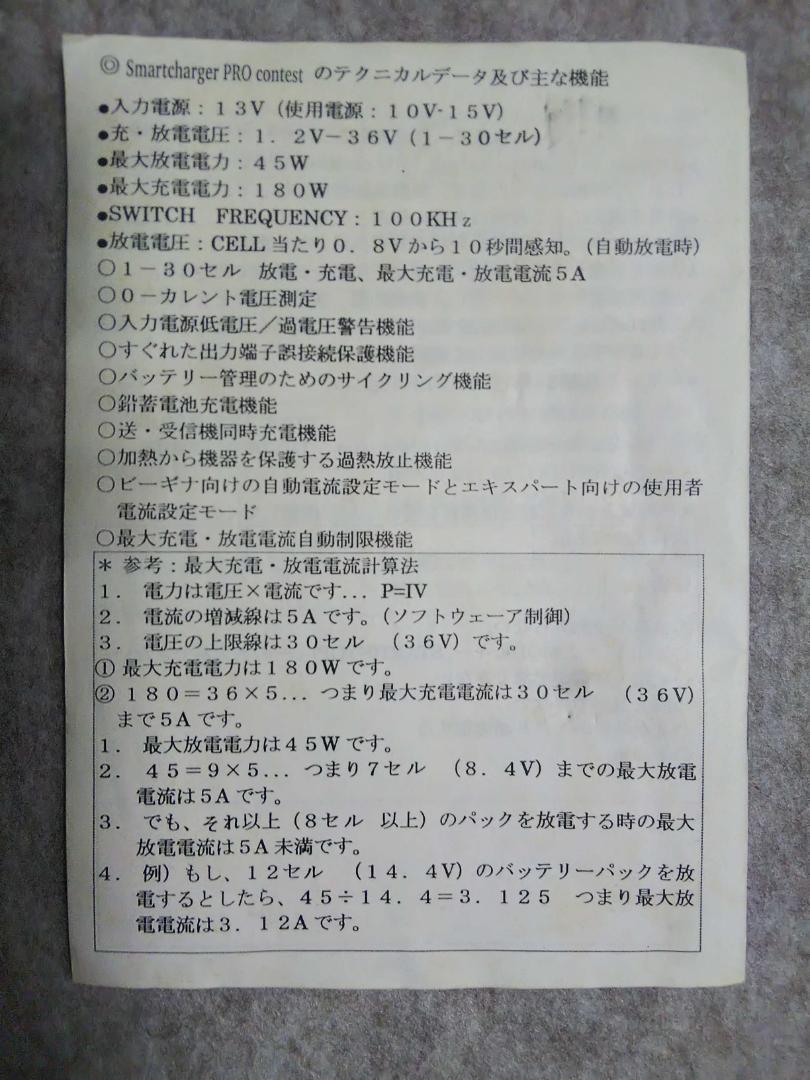 ◎ Smartcharger PRO contest のテクニカルデータ及び主な機能
●入力電源：１３V（使用電源：１０V-１５V）
●充・放電電圧：１．２V－３６V（１－３０セル）
●最大放電電力：４５W
●最大充電電力：１８０W
●SWITCH　FREQUENCY：１００KHｚ
●放電電圧：CELL当たり０．８Vから１０秒間感知。（自動放電時）
○１－３０セル　放電・充電、最大充電・放電電流５A
○０－カレント電圧測定
○入力電源低電圧／過電圧警告機能
○すぐれた出力端子誤接続保護機能
○バッテリー管理のためのサイクリング機能
○鉛蓄電池充電機能
○送・受信機同時充電機能
○加熱から機器を保護する過熱放止機能
○ビーギナ向けの自動電流設定モードとエキスパート向けの使用者
電流設定モード
○最大充電・放電電流自動制限機能
＊ 参考：最大充電・放電電流計算法
１． 電力は電圧×電流です... P=IV
２． 電流の増減線は５Aです。（ソフトウェーア制御）
３． 電圧の上限線は３０セル　（３６V）です。
① 最大充電電力は１８０Wです。
② １８０＝３６×５... つまり最大充電電流は３０セル　（３６V）
まで５Aです。
１． 最大放電電力は４５Wです。
２． ４５＝９×５... つまり７セル　（８．４V）までの最大放電
電流は５Aです。
３． でも、それ以上（８セル　以上）のパックを放電する時の最大
放電電流は５A未満です。
４． 例）もし、１２セル　（１４．４V）のバッテリーパックを放
電するとしたら、４５÷１４．４＝３．１２５　つまり最大放
電電流は３．１２Aです。